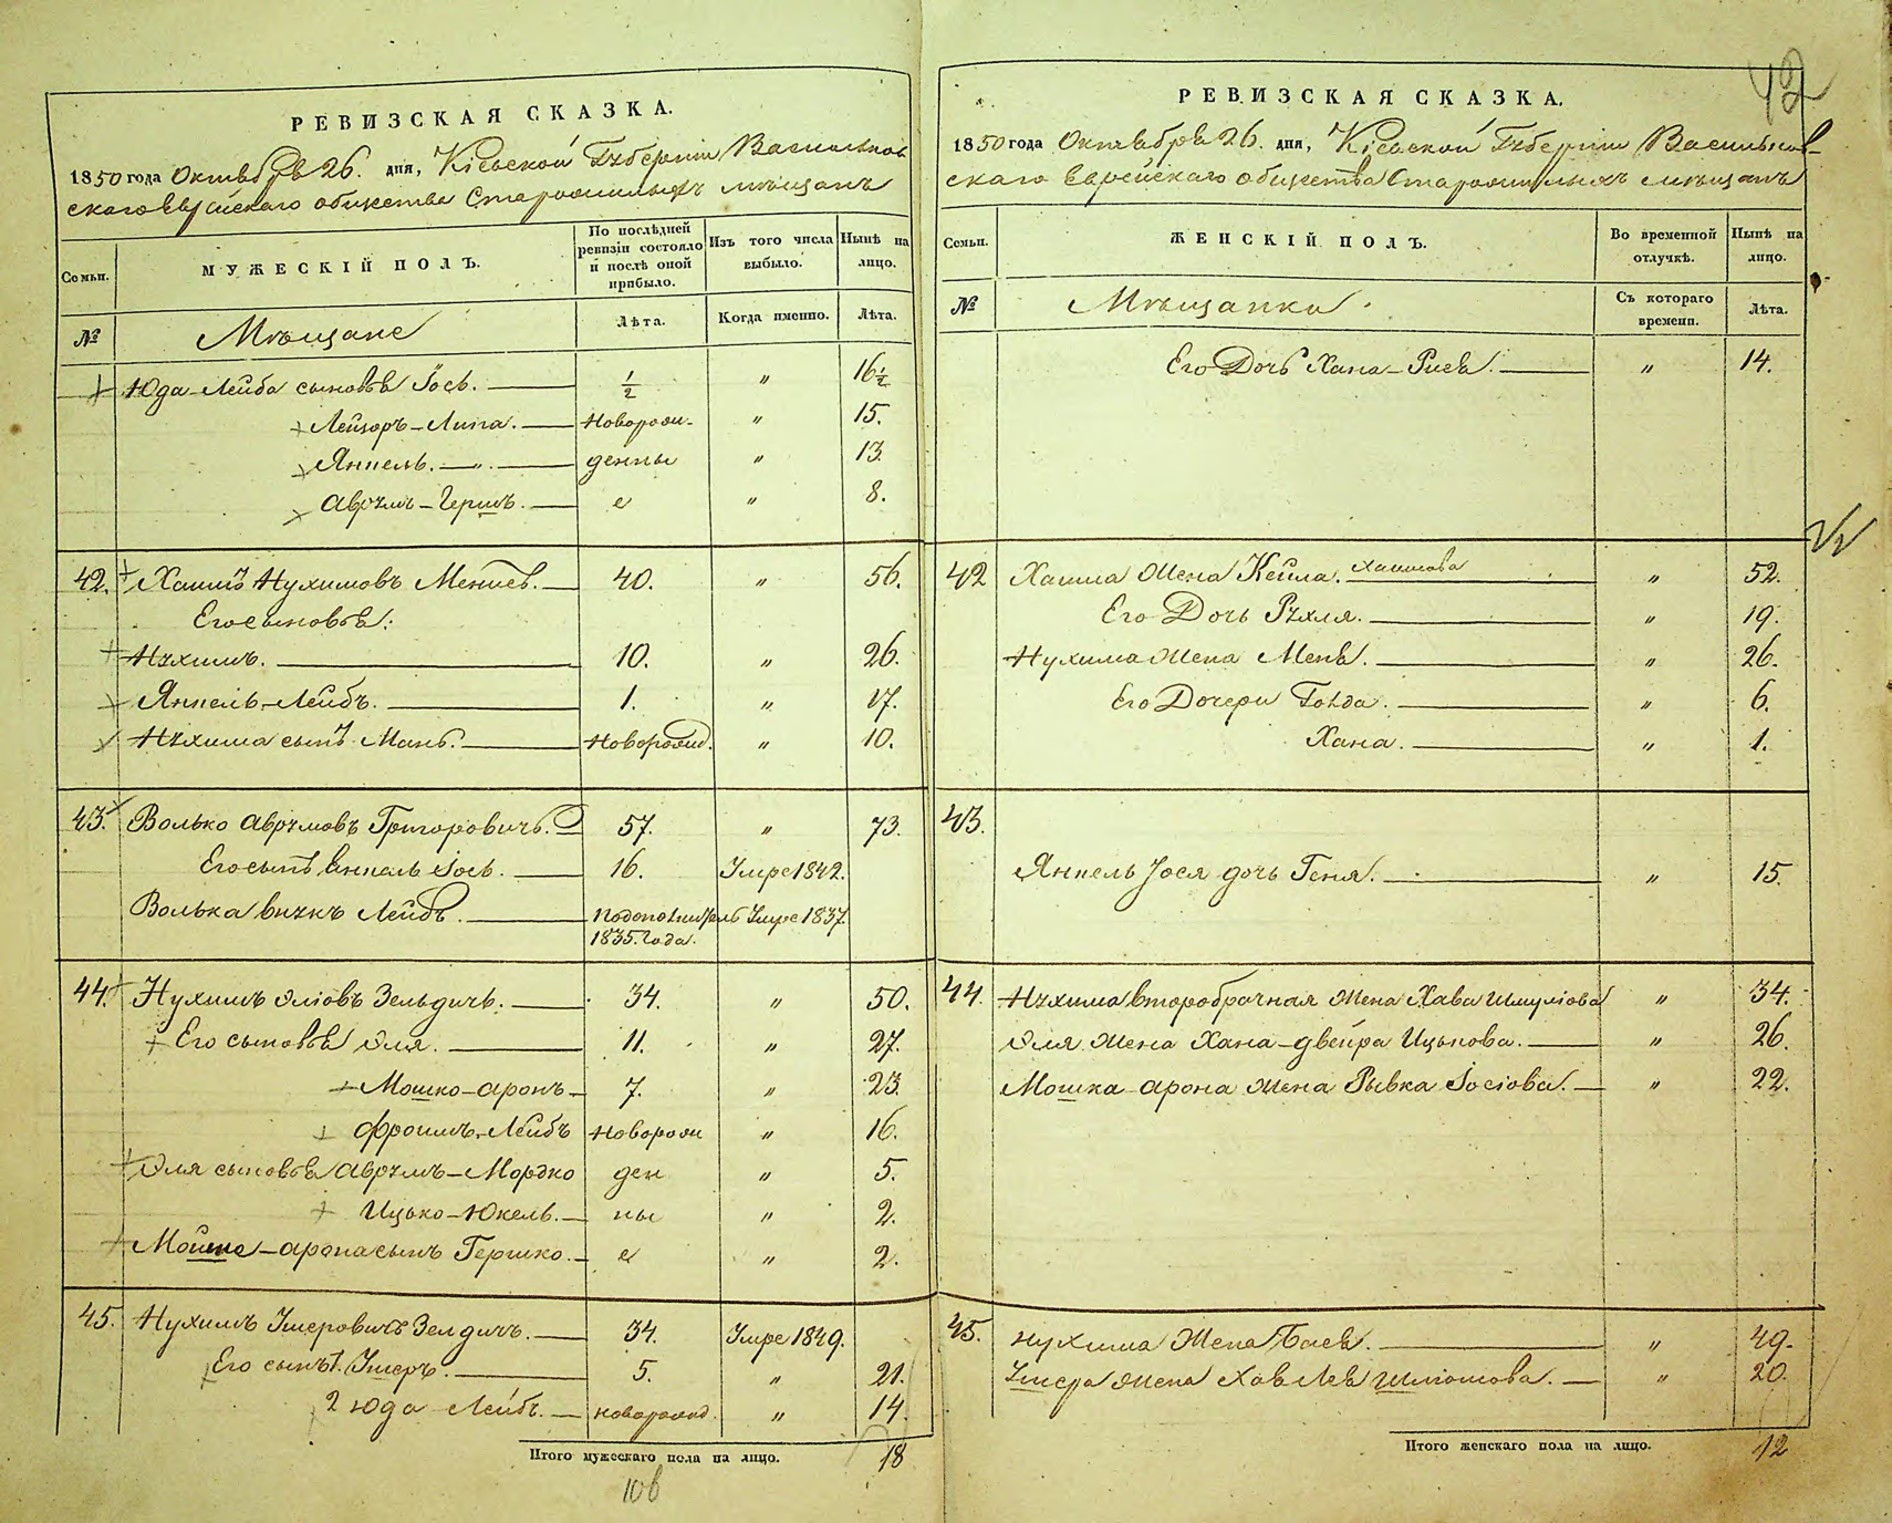 РЕВИЗСКАЯ СКАЗКА.
1850 года Октября 26. дня, Кіевской Губерніи Васильков-
скаго Еврейскаго общества Старожилыхъ мѣщанъ
Семьи.
МУЖЕСКІЙ ПОЛЪ.
По послѣдней ревизіи состояло и послѣ оной прибыло.
Изъ того числа выбыло.
Нынѣ на лицо.
№
Мѣщане
Лѣта.
Когда именно.
Лѣта.
Юда-Лейба сыновья Іось. 1/2 " 16 1/2
Лейзоръ-Липа. Новорож- " 15.
Янкель. " денны " 13.
Аврумъ-Гершъ. е " 8.
42. Хаимъ Нухимовъ 40. " 56.
Его сыновья:
Нухимъ. 10. " 26.
Янкель-Лейбъ. 1. " 17.
Нухима сынъ Мань. Новорожд. " 10.
43. Волько Аврумовъ Григоровичъ. 57. " 73.
Его сынъ Янкель Іось. 16. Умре 1842.
Волька внукъ Лейбъ. Умре 1837.
1835. Года.
44. Нухимъ Эліовъ Зельдичъ. 34. " 50.
Его сыновья Эля. 11. " 27.
Мошко-Аронъ 7. " 23.
Фроимъ-Лейбъ Новорож " 16.
Эля сыновья Аврумъ-Мордко ден " 5.
Ицько-Юкель. ны " 2.
Мошко-Арона сынъ Гершко. е " 2.
45. Нухимъ Умеровичъ Зелдичъ. 34. Умре 1849.
Его сынъ 1. Ушеръ. 5. " 21.
2 Юда Лейбъ. новорожд. " 14.
Итого мужескаго пола на лицо. 18
42
РЕВИЗСКАЯ СКАЗКА.
1850 года Октября 26. дня, Кіевской Губерніи Васильков-
скаго Еврейскаго общества Старожилыхъ мѣщанъ
Семьи.
ЖЕНСКІЙ ПОЛЪ.
Во временной отлучкѣ.
Нынѣ на лицо.
№
Мѣщанки
Съ котораго времени.
Лѣта.
Его Дочь Хана-Рися. " 14.
42 Хаима Жена Кейла. Хаимова " 52.
Его Дочь Рухля. " 19.
Нухима Жена Меня. " 26.
Его Дочери Голда. " 6.
Хана. " 1.
43.
Янкель Іося дочь Геня. " 15.
44. Нухима второбрачная Жена Хава Шмуліова " 34.
Эля Жена Хана-Двейра Ицькова. " 26.
Мошка-Арона Жена Рывка Іосіова. " 22.
45. Нухима Жена Бася. " 49.
Ушера Жена Хая Лея Шліомова. " 20.
Итого женскаго пола на лицо. 12